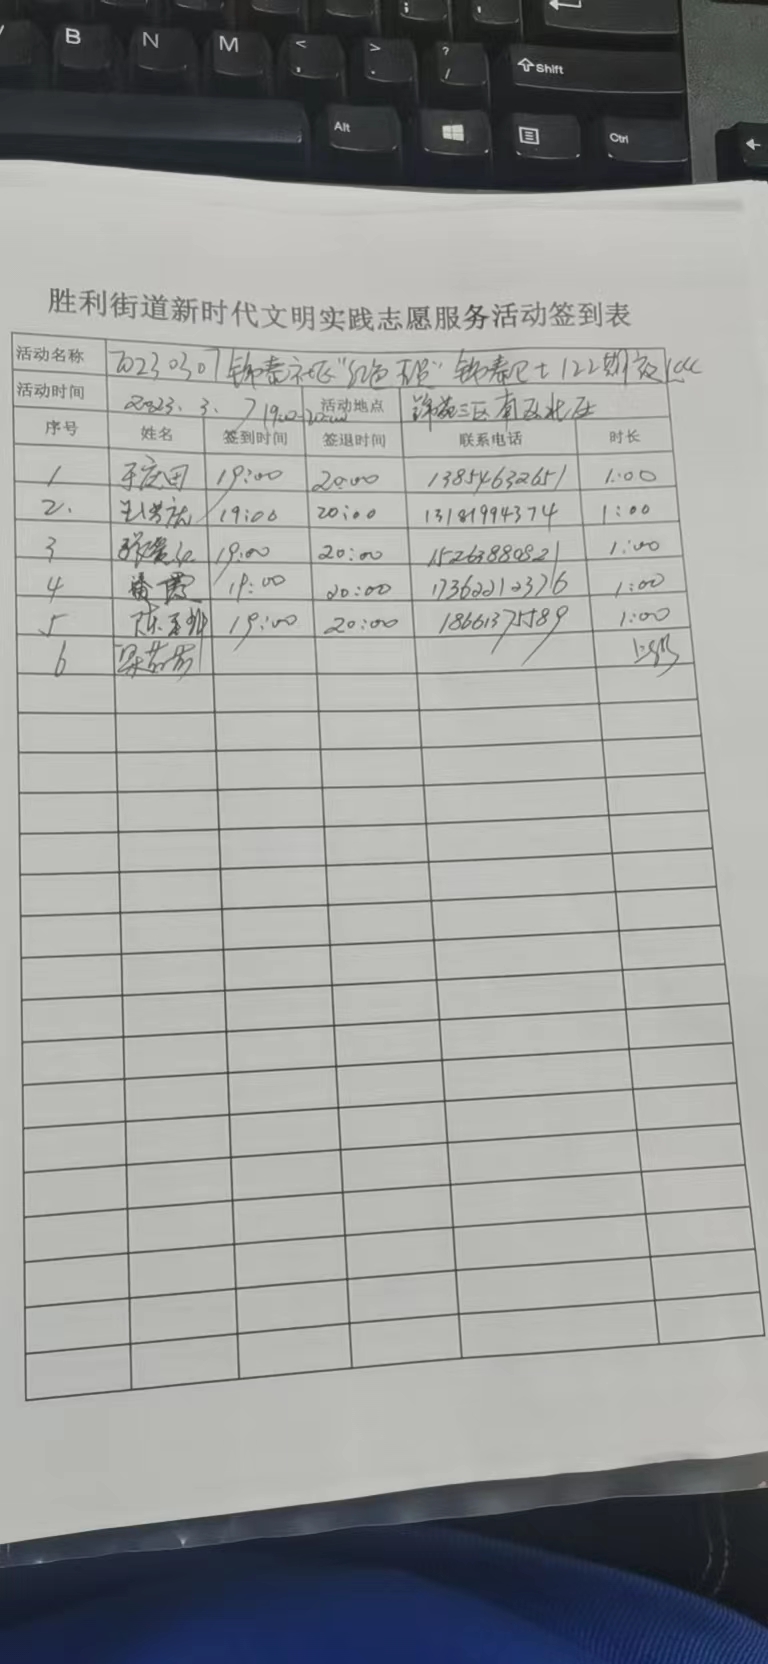 B N M < , > . ? / Shift
Alt Ctrl
胜利街道新时代文明实践志愿服务活动签到表
活动名称 20230307锦泰社区"红色 " 锦泰 122期
活动时间 2023.3.7 19:00-20:00 活动地点 锦苑三区南区北
序号 姓名 签到时间 签退时间 联系电话 时长
1 19:00 20:00 13854632651 1:00
2. 19:00 20:00 13181994374 1:00
3 19:00 20:00 15263880821 1:00
4 霞 19:00 20:00 17362212376 1:00
5 陈 19:00 20:00 18661375589 1:00
6